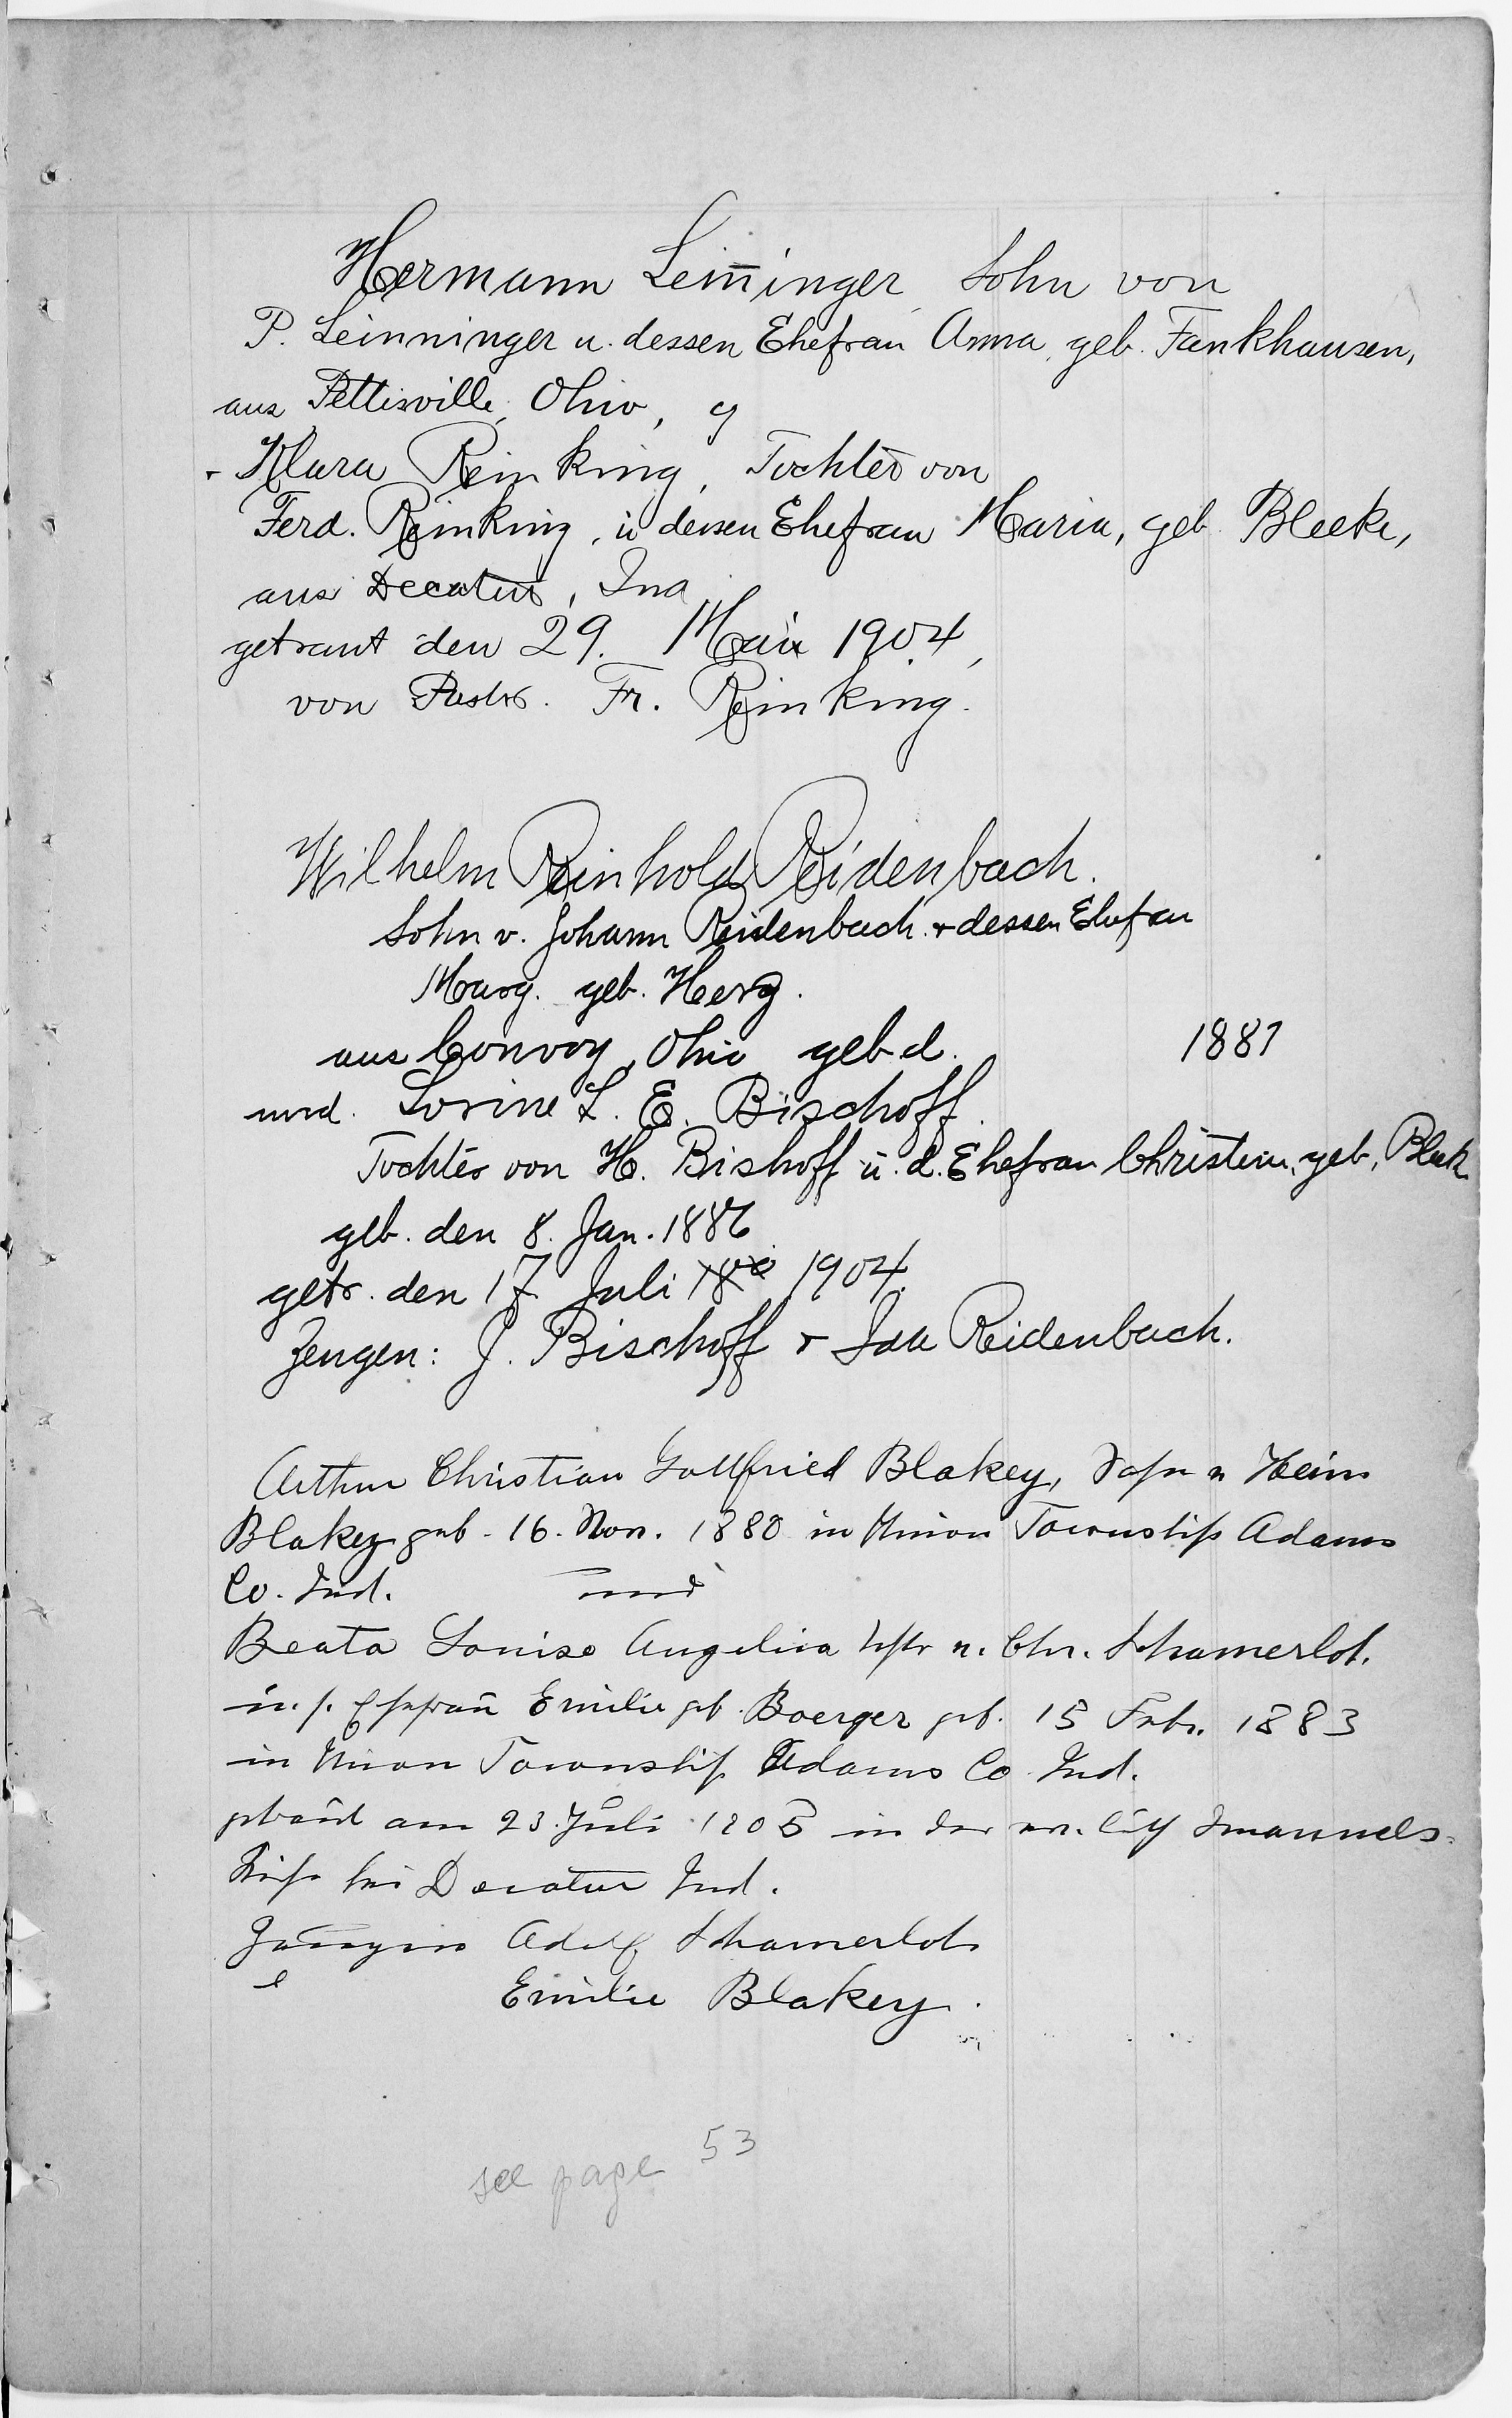 Hermann Leinninger, Sohn von
P. Leinninger u. dessen Ehefrau Anna, geb. Fankhausen,
aus Pettisville, Ohio,
+ Klara Reinking, Tochter von
Ferd. Reinking, u dessen Ehefrau Maria, geb. Bleeke,
aus Decatur, Ind
getraut den 29. Mai 1904,
von Pastor. Fr. Reinking.
Wilhelm Reinhold Reidenbach.
Sohn v. Johann Reidenbach + dessen Ehefrau
Marg. geb. Herg.
aus Convoy, Ohio geb d. 1881
und. L. E. Bischoff.
Tochter von H. Bishoff u. d. Ehefrau Christein, geb. Bleek
geb. den 8. Jan. 1886
getr. den 17 Juli 1904.
Zeugen: J. Bischoff + Ida Reidenbach.
Arthur Christian Gottfried Blakey, Sohn v Heinr
Blakey geb. 16. Nov. 1880 in Union Township Adams
Co. Ind. und
Beata Louise Angelica Schamerloh.
u. s. Ehefrau Emilie geb. Boerger geb. 15 Febr. 1883
in Union Township Adams Co Ind.
getraut am 23. Juli 1905 in der ev. luth Immanuels-
Kirche bei Decatur Ind.
Zeugen Adolf Schamerloh
Emilie Blakey.
see page 53